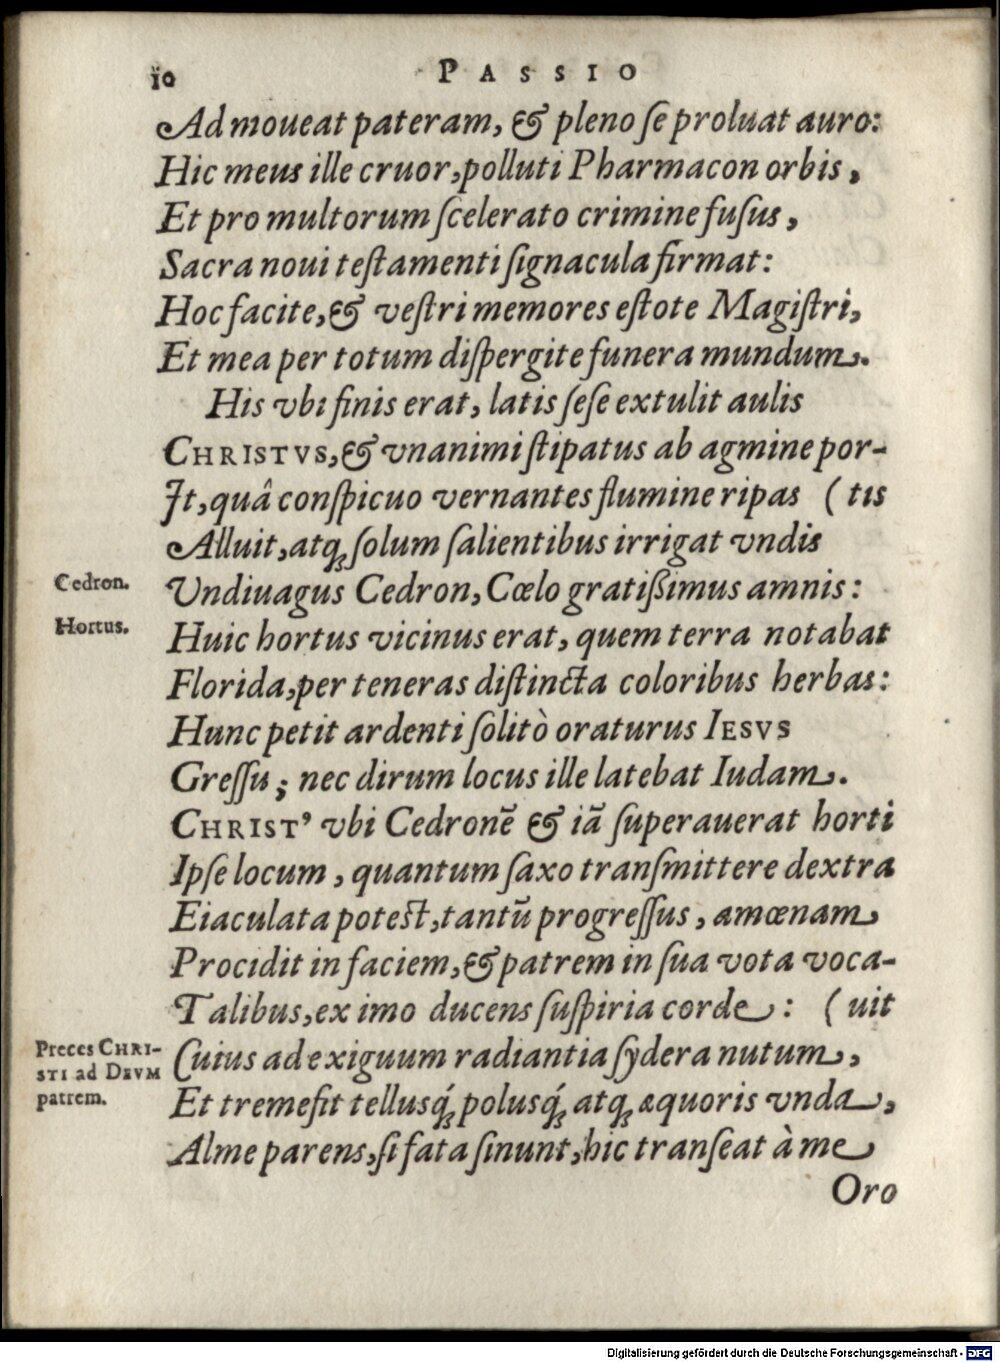 10 PASSIO
Admoueat pateram, & pleno ſe proluat auro:
Hic meus ille cruor, polluti Pharmacon orbis,
Et pro multorum ſcelerato crimine fuſus,
Sacra noui teſtamenti ſignacula firmat:
Hoc facite, & veſtri memores eſtote Magiſtri,
Et mea per totum diſpergite funera mundum.
His vbi finis erat, latis ſeſe extulit aulis
CHRISTVS, & vnanimi ſtipatus ab agmine por-
It, quâ conſpicuo vernantes flumine ripas (tis
Alluit, atq; ſolum ſalientibus irrigat vndis
Cedron. Vndiuagus Cedron, Cœlo gratißimus amnis:
Hortus. Huic hortus vicinus erat, quem terra notabat
Florida, per teneras diſtincta coloribus herbas:
Hunc petit ardenti ſolitò oraturus IESVS
Greſſu; nec dirum locus ille latebat Iudam.
CHRIST' vbi Cedronē & iā ſuperauerat horti
Ipſe locum, quantum ſaxo tranſmittere dextra
Eiaculata poteſt, tantū progreſſus, amœnam
Procidit in faciem, & patrem in ſua vota voca-
Talibus, ex imo ducens ſuſpiria corde: (uit
Preces CHRI-
STI ad DEVM
patrem.
Cuius ad exiguum radiantia ſydera nutum,
Et tremefit tellusq́; polusq́; atq; æquoris vnda,
Alme parens, ſi fata ſinunt, hic tranſeat à me
Oro
Digitalisierung gefördert durch die Deutsche Forschungsgemeinschaft - DFG